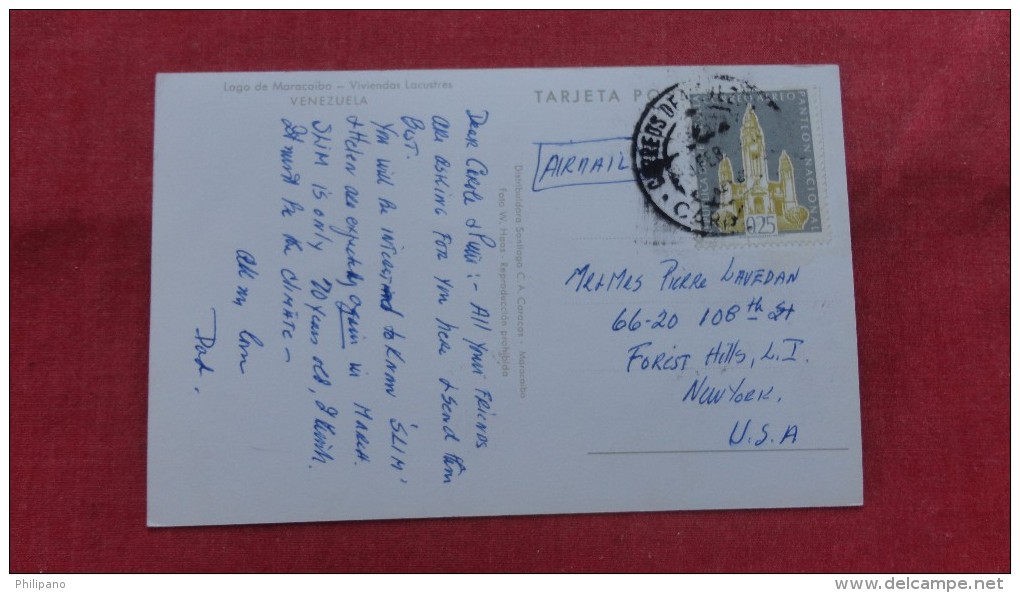 Lago de Maracaibo – Viviendas Lacustres
VENEZUELA
TARJETA PO
AIRMAIL
CORREOS DE
CARA
AEREO
PANTEON NACIONAL
0,25
Distribuidora Santiago C. A. Caracas - Maracaibo
Foto W. Hans - Reproducción prohibida
Dear Carole & Pierre :- All your FRiENDS
are asking for you here & send their
BEST.
You will be interested to Know SLIM
& Helen are expecting again in MARCH.
SLIM is only 70 years old, I think.
It must be the CLIMATE –
All my love
Dad.
Mr & Mrs Pierre LAVEDAN
66-20 108th St
FOREST Hills, L.I.
NEW YORK.
U.S.A
Philipano
www.delcampe.net